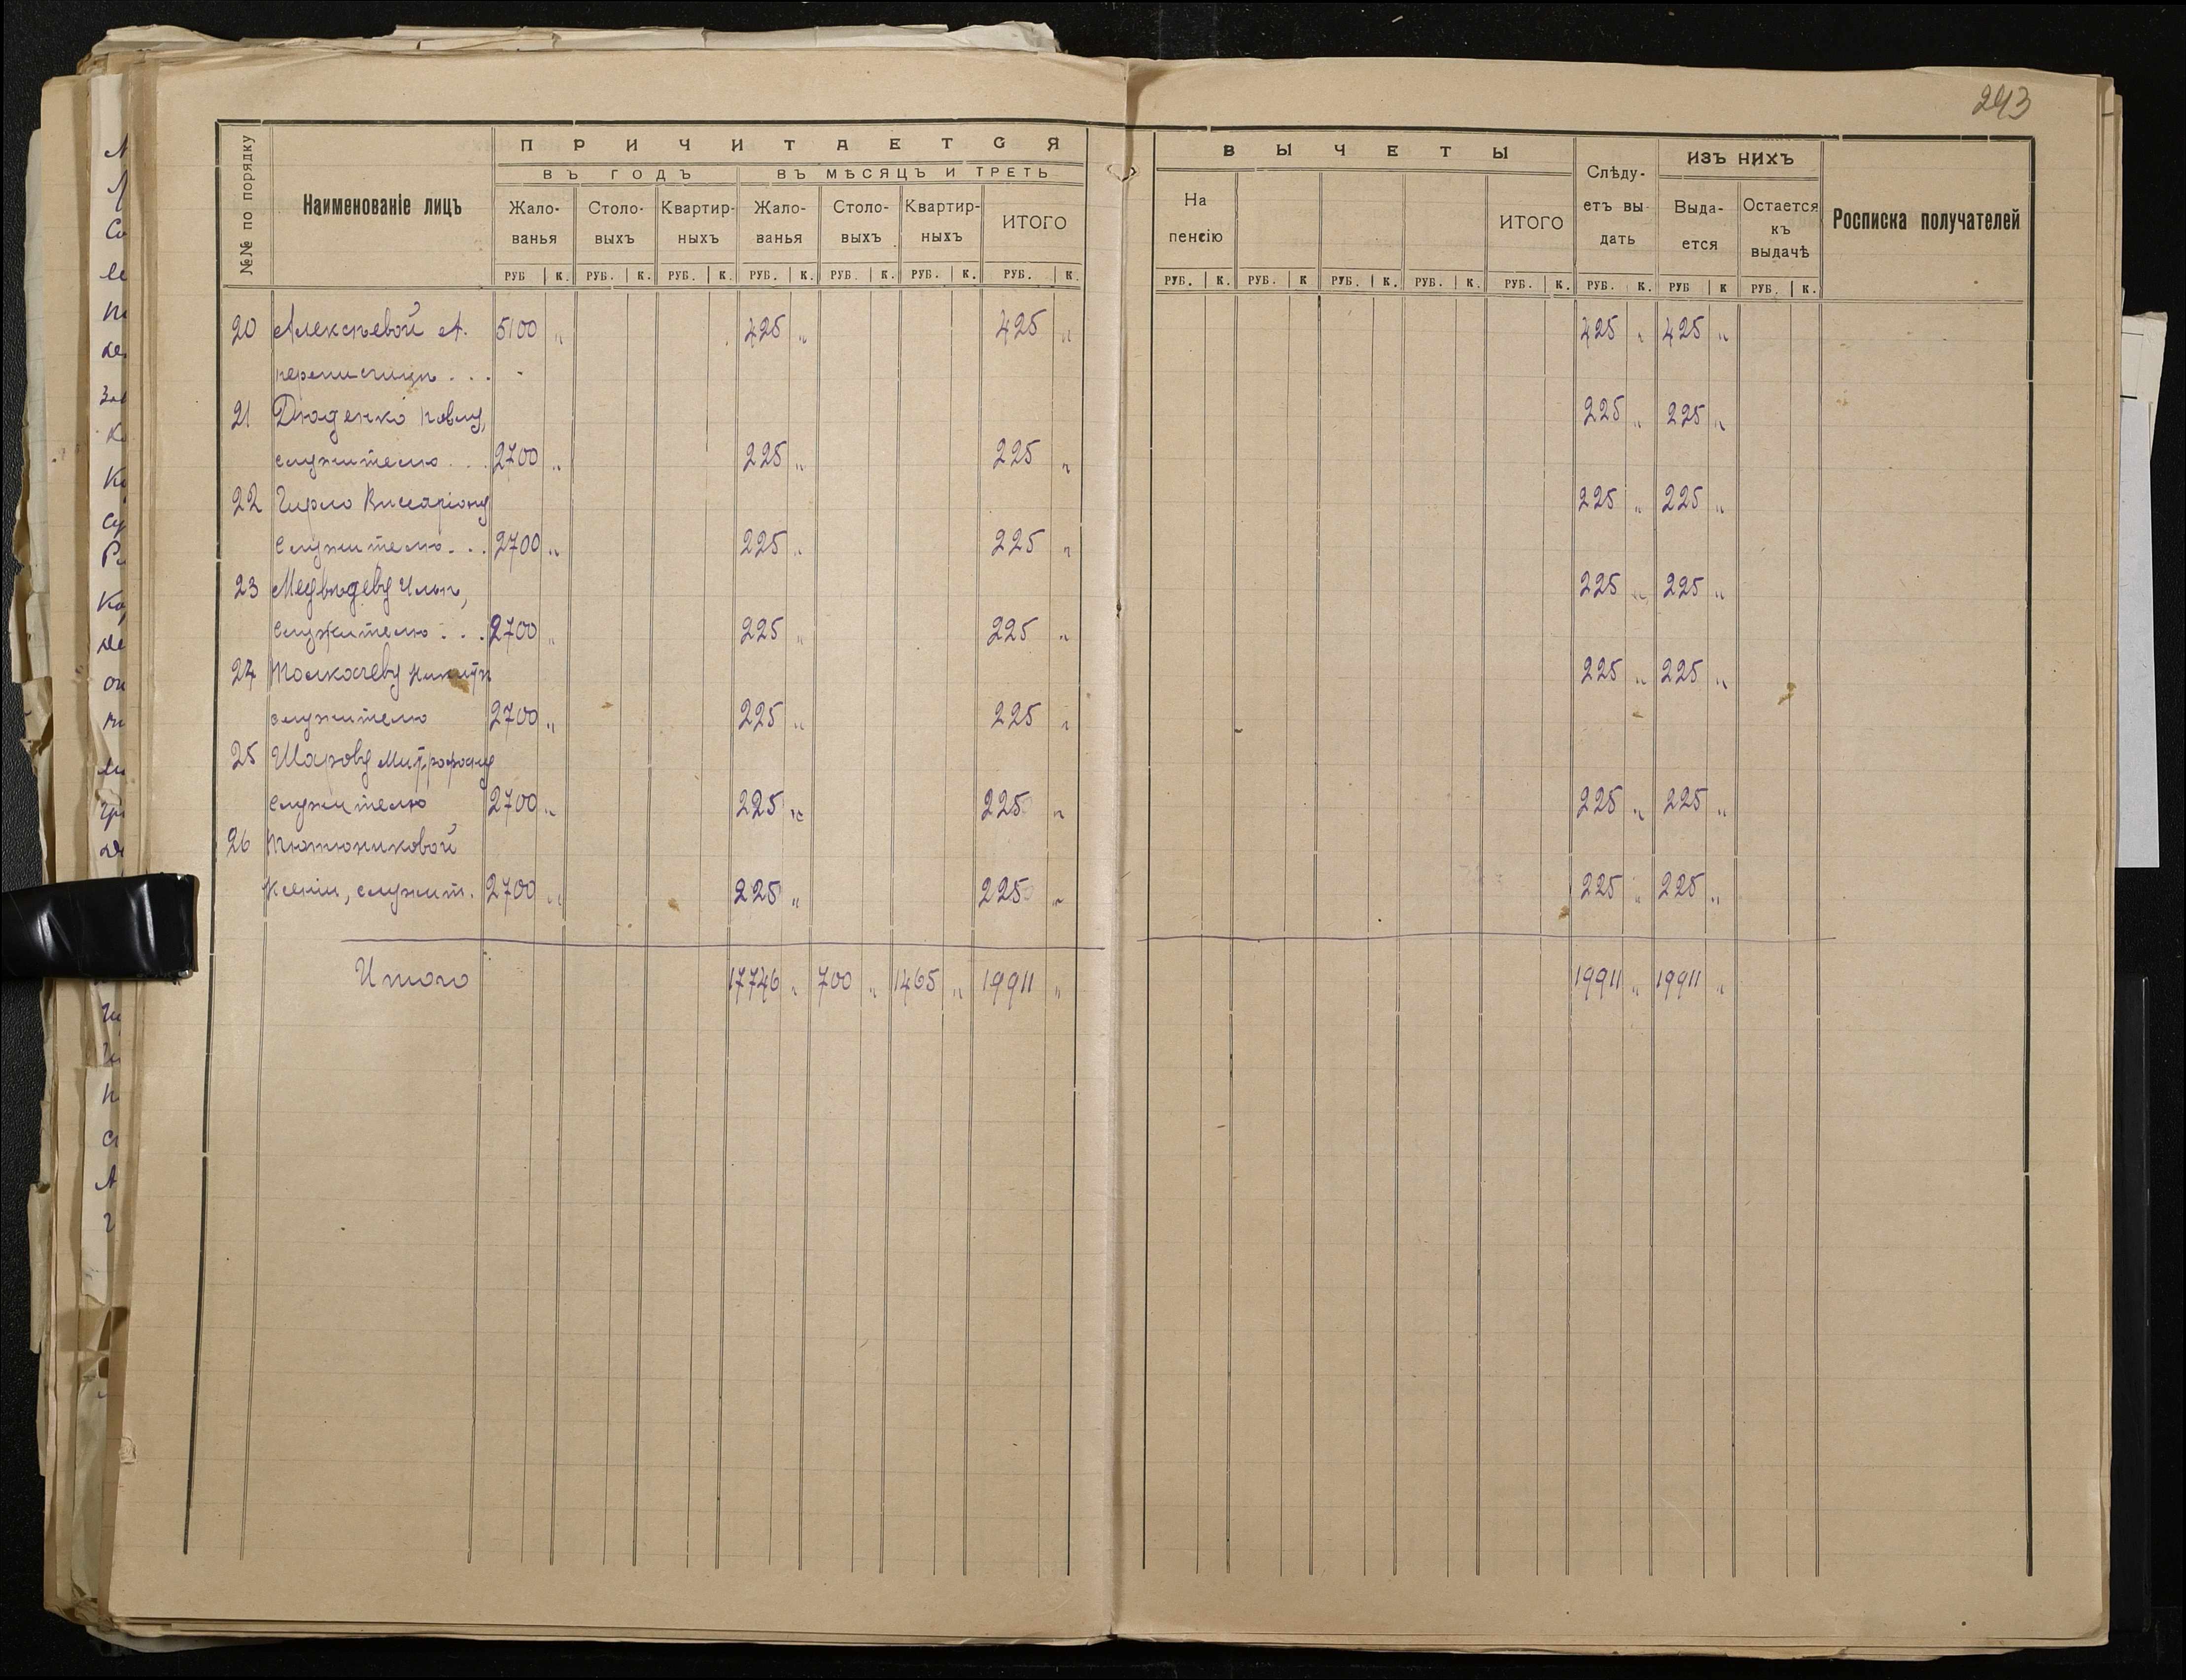 243
№№ по порядку
Наименованіе лицъ
ПРИЧИТАЕТСЯ
ВЪ ГОДЪ
ВЪ МѢСЯЦЪ И ТРЕТЬ
Жало-
ванья
Столо-
выхъ
Квартир-
ныхъ
Жало-
ванья
Столо-
выхъ
Квартир-
ныхъ
ИТОГО
РУБ К. РУБ. К. РУБ. К. РУБ. К. РУБ. К. РУБ. К. РУБ. К.
ВЫЧЕТЫ
На
пенсію
ИТОГО
Слѣду-
етъ вы-
дать
ИЗЪ НИХЪ
Выда-
ется
Остается
къ
выдачѣ
Росписка получателей
РУБ. К. РУБ. К РУБ. К. РУБ. К. РУБ. К. РУБ. К. РУБ К РУБ. К.
20 Алексѣевой А. 5100 " 425 " 425 " 425 " 425 "
переписчицѣ . . .
21 Дюденко Павлу, 225 " 225 "
служителю . . . 2700 " 225 " 225 "
22 Гирло Висаріону 225 " 225 "
служителю . . . 2700 " 225 " 225 "
23 Медвѣдеву Ильѣ, 225 " 225 "
служителю . . . 2700 " 225 " 225 "
24 Толкачеву Никитѣ 225 " 225 "
служителю 2700 " 225 " 225 "
25 Шарову Митрофану
служителю 2700 " 225 " 225 " 225 " 225 "
26 Тютюниковой
Ксеніи, служит. 2700 " 225 " 225 " 225 " 225 "
Итого 17746 " 700 " 1465 " 19911 " 19911 " 19911 "